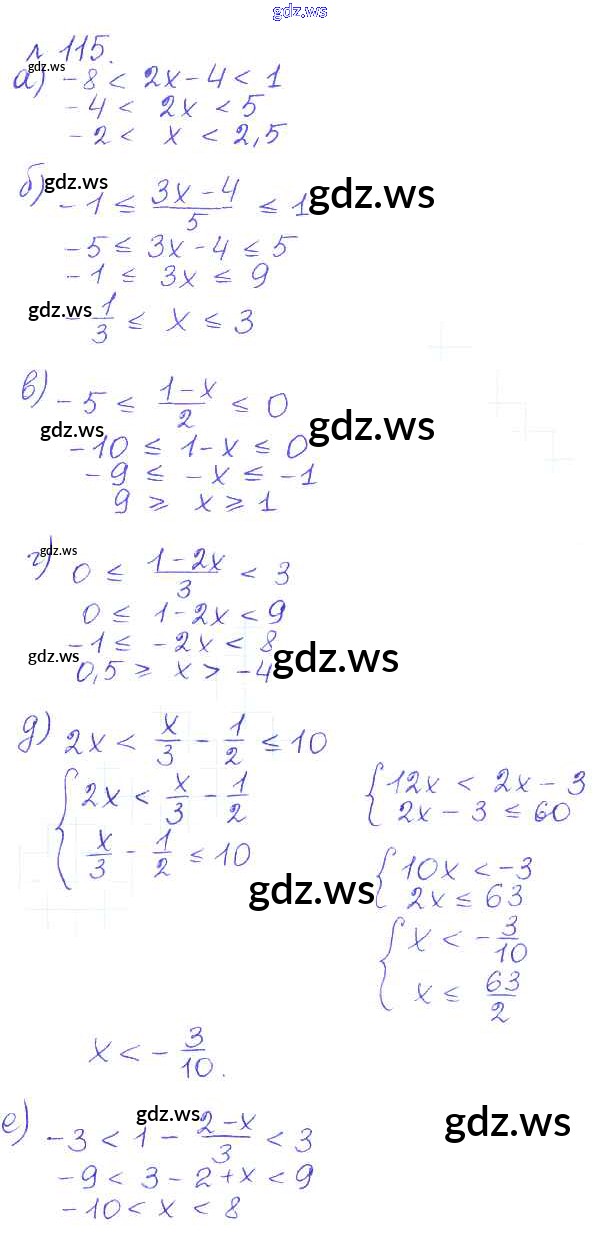 gdz.ws
№ 115.
gdz.ws
а) -8 < 2x - 4 < 1
-4 < 2x < 5
-2 < x < 2,5
б) gdz.ws -1 ≤ (3x - 4)/5 ≤ 1 gdz.ws
-5 ≤ 3x - 4 ≤ 5
-1 ≤ 3x ≤ 9
gdz.ws -1/3 ≤ x ≤ 3
в) -5 ≤ (1 - x)/2 ≤ 0
gdz.ws gdz.ws
-10 ≤ 1 - x ≤ 0
-9 ≤ -x ≤ -1
9 ≥ x ≥ 1
gdz.ws
г) 0 ≤ (1 - 2x)/3 < 3
0 ≤ 1 - 2x < 9
-1 ≤ -2x < 8
gdz.ws gdz.ws
0,5 ≥ x > -4
д) 2x < x/3 - 1/2 ≤ 10
{ 2x < x/3 - 1/2
x/3 - 1/2 ≤ 10
{ 12x < 2x - 3
2x - 3 ≤ 60
gdz.ws
{ 10x < -3
2x ≤ 63
{ x < -3/10
x ≤ 63/2
x < -3/10.
е) gdz.ws gdz.ws
-3 < 1 - (2 - x)/3 < 3
-9 < 3 - 2 + x < 9
-10 < x < 8